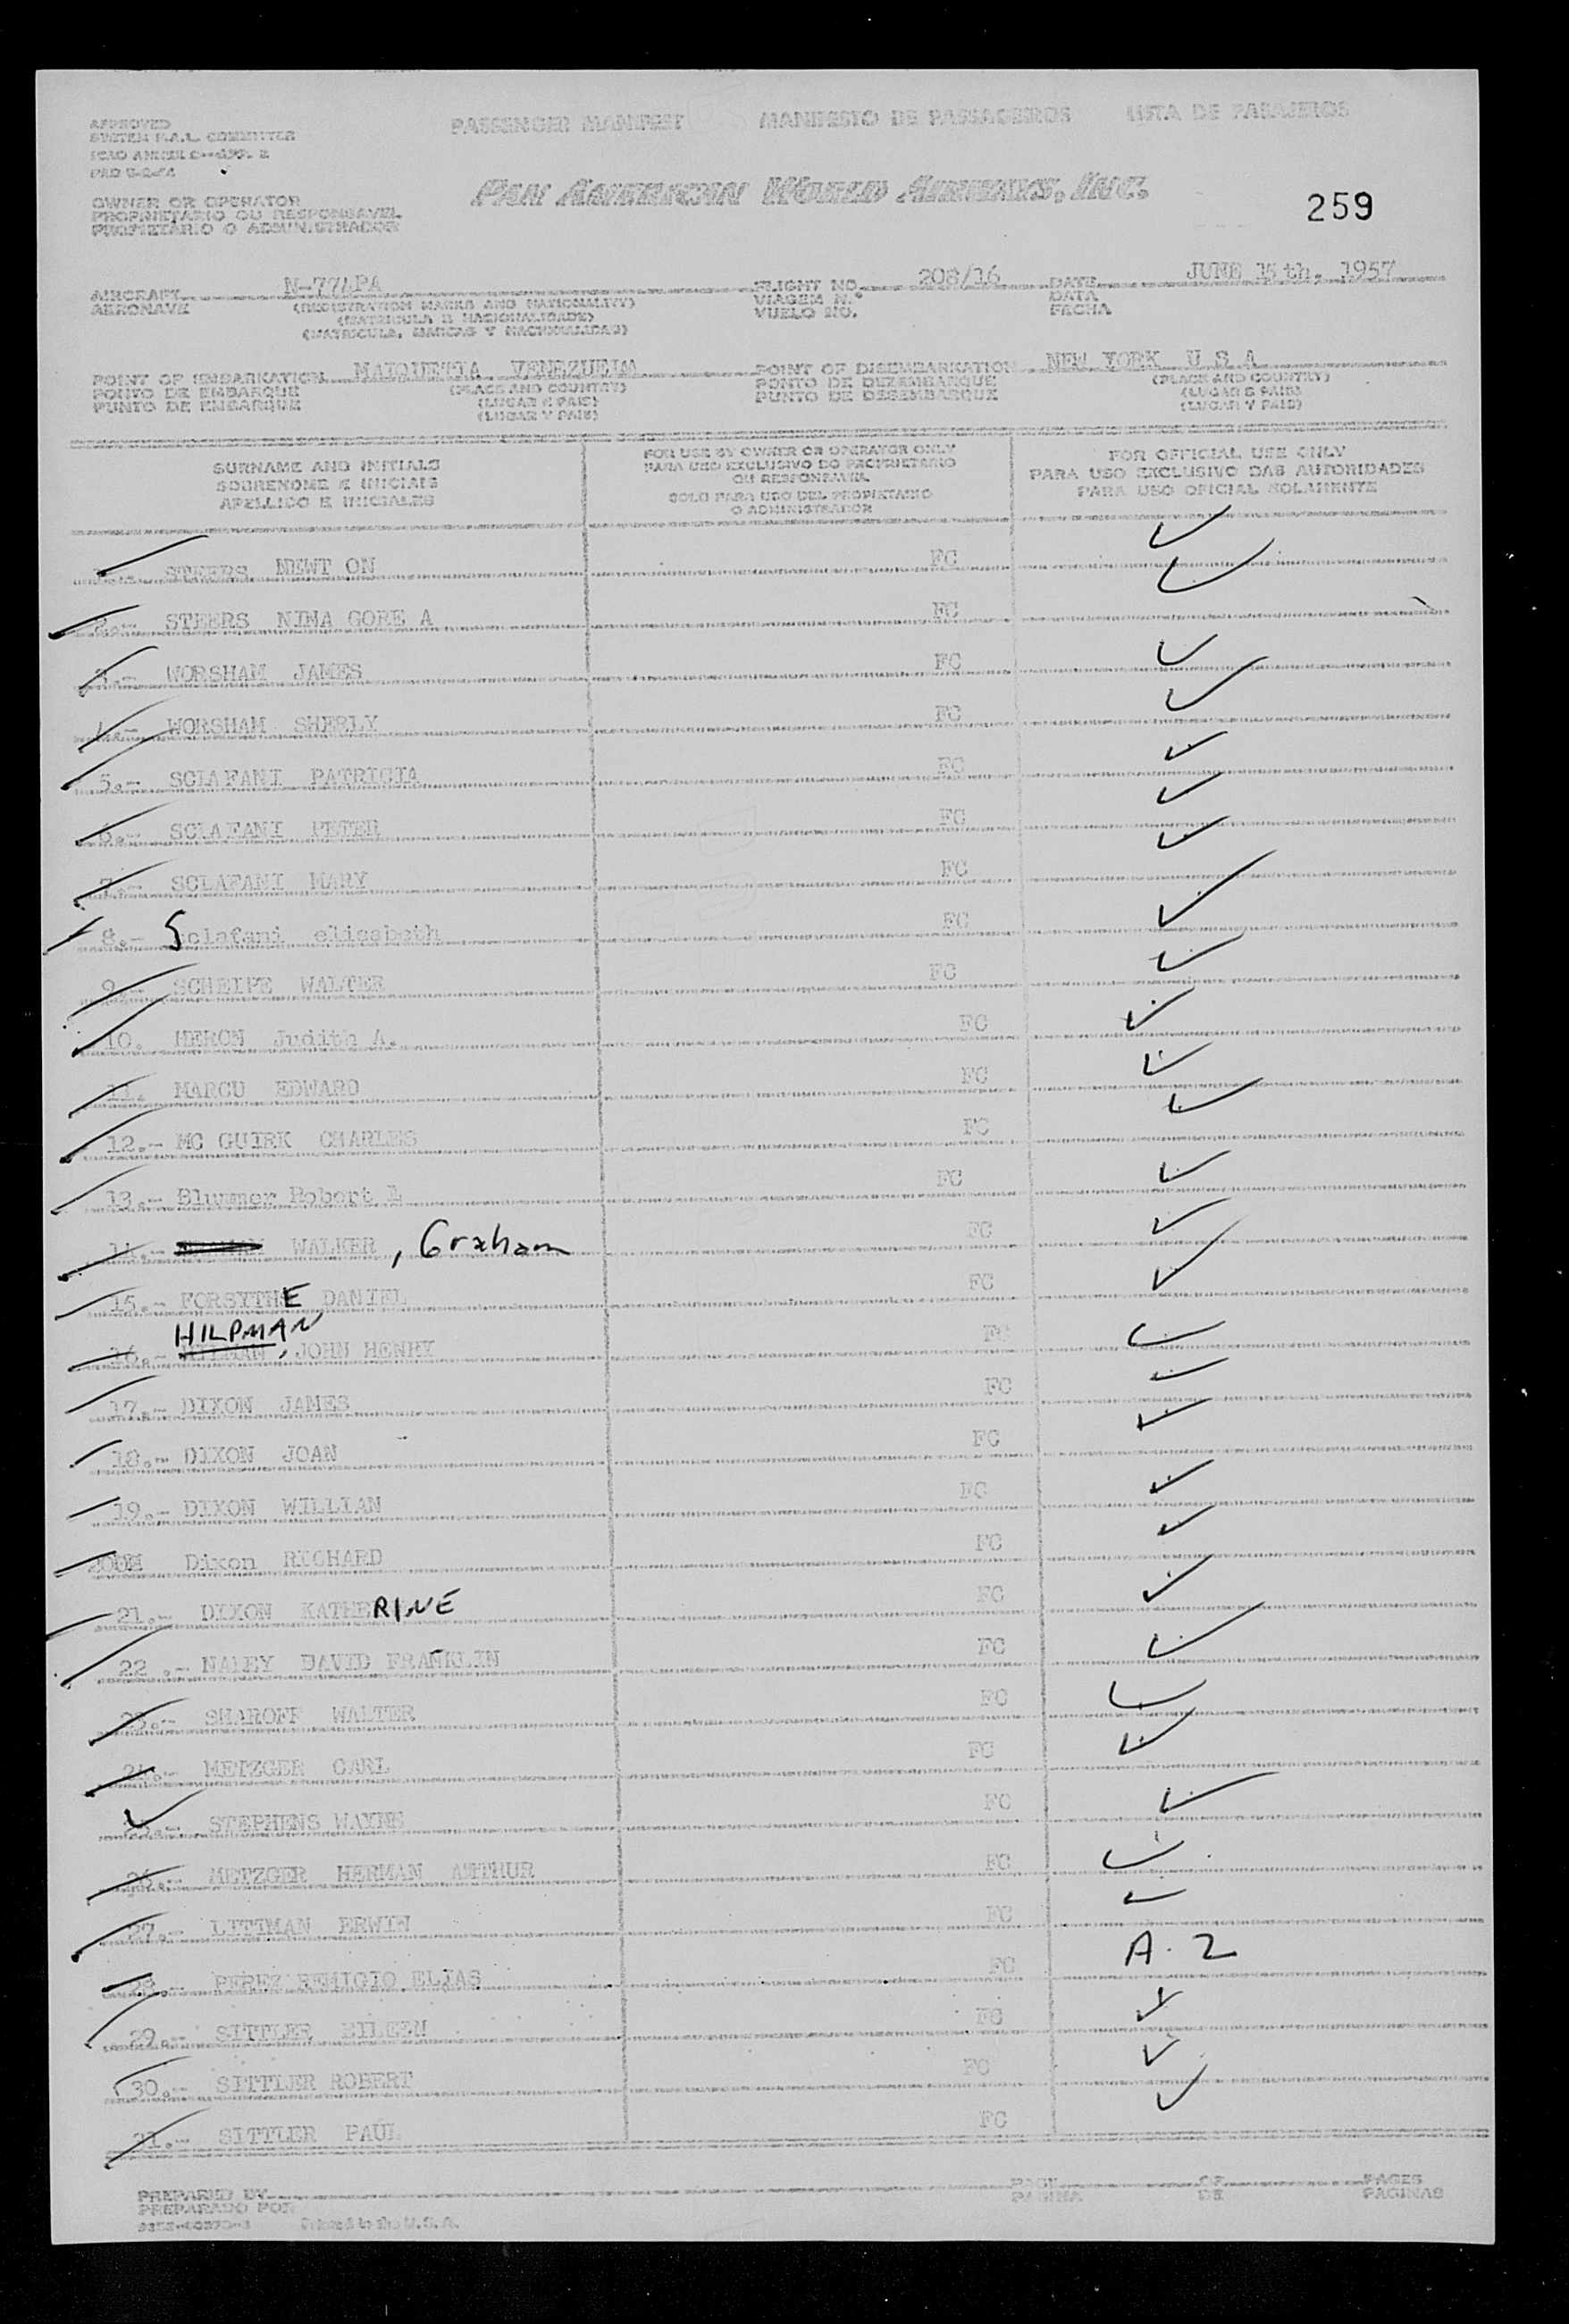 APPROVED
PASSENGER MANIFEST MANIFESTO DE PASSAGEIROS LISTA DE PASAJEROS
SYSTEM F.A.L. COMMITTEE
PAN AMERICAN WORLD AIRWAYS, INC.
259
OWNER OR OPERATOR
PROPRIETARIO OU RESPONSAVEL
PROPIETARIO O ADMINISTRADOR
AIRCRAFT N-774PA FLIGHT NO. 208/16 DATE JUNE 15th, 1957
AERONAVE (REGISTRATION MARKS AND NATIONALITY) VIAGEM N.º DATA
(MATRICULA E NACIONALIDADE) VUELO NO. FECHA
(MATRICULA, MARCAS Y NACIONALIDAD)
POINT OF EMBARKATION MAIQUETIA VENEZUELA POINT OF DISEMBARKATION NEW YORK U.S.A
PONTO DE EMBARQUE (PLACE AND COUNTRY) PONTO DE DEZEMBARQUE (PLACE AND COUNTRY)
PUNTO DE EMBARQUE (LUGAR E PAIS) PUNTO DE DESEMBARQUE (LUGAR E PAIS)
(LUGAR Y PAIS) (LUGAR Y PAIS)
SURNAME AND INITIALS
SOBRENOME E INICIAIS
APELLIDO E INICIALES
FOR USE BY OWNER OR OPERATOR ONLY
PARA USO EXCLUSIVO DO PROPRIETARIO
OU RESPONSAVEL
SOLO PARA USO DEL PROPIETARIO
O ADMINISTRADOR
FOR OFFICIAL USE ONLY
PARA USO EXCLUSIVO DAS AUTORIDADES
PARA USO OFICIAL SOLAMENTE
STEERS NEWT ON FC
2.- STEERS NINA GORE A FC
3.- WORSHAM JAMES FC
4.- WORSHAM SHERLY FC
5.- SCLAFANI PATRICIA FC
6.- SCLAFANI PETER FC
7.- SCLAFANI MARY FC
8.- Sclafani elisabeth FC
9.- SCHEIPE WALTER FC
10. HERON Judith A. FC
11. MARCU EDWARD FC
12.- MC GUIRK CHARLES FC
13.- Blummer Robert L FC
14.- WALKER , Graham FC
15.- FORSYTHE DANIEL FC
HILPMAN
16.- HILMAN, JOHN HENRY FC
17.- DIXON JAMES FC
18.- DIXON JOAN FC
19.- DIXON WILLIAN FC
Dixon RICHARD FC
21.- DIXON KATHERINE FC
22 .- NALEY DAVID FRANKLIN FC
23.- SHAROFF WALTER FC
24.- METZGER CARL FC
25.- STEPHENS WAYNE FC
26.- METZGER HERMAN ARTHUR FC
27.- LITTMAN ERWIN FC
28.- PEREZ REMIGIO ELIAS FC A.2
29.- SITTLER EILEEN FC
30.- SITTLER ROBERT FC
31.- SITTLER PAUL FC
PREPARED BY PAGE OF PAGES
PREPARADO POR PAGINA DE PAGINAS
Printed in the U.S.A.